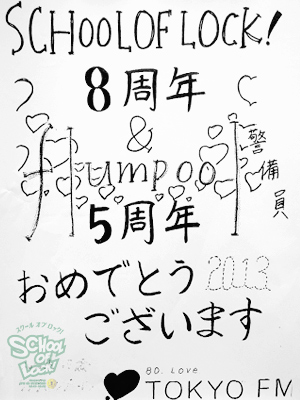 SCHOOL OF LOCK!
8周年
&
flumpool
警備員
5周年
おめでとう
2013
ございます
スクール オブ ロック!
SCHOOL OF LOCK!
80. Love
TOKYO FM